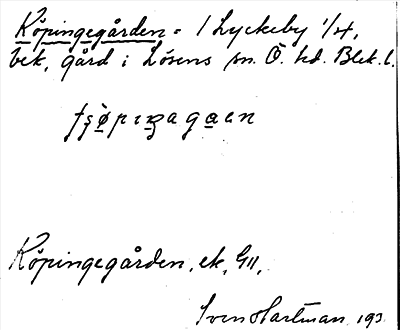 Köpingegården = 1 Lyckeby 1/4,
bek, gård i Lösens sn. Ö. hd. Blek. l.
Köpingegården, ek, G11,
Sven Hartman, 193